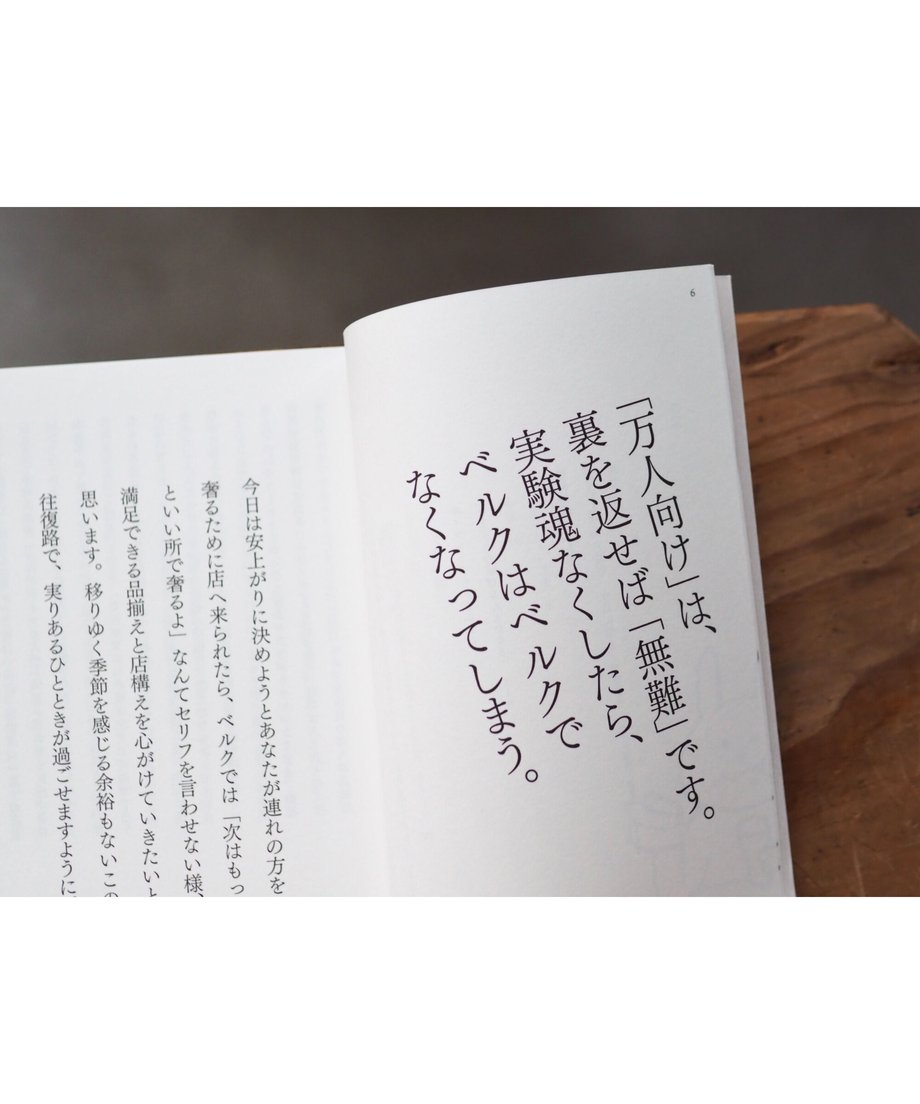 6
「万人向け」は、
裏を返せば「無難」です。
実験魂なくしたら、
ベルクはベルクで
なくなってしまう。
今日は安上がりに決めようとあなたが連れの方を
奢るために店へ来られたら、ベルクでは「次はもっ
といい所で奢るよ」なんてセリフを言わせない様、
満足できる品揃えと店構えを心がけていきたいと
思います。移りゆく季節を感じる余裕もないこの
往復路で、実りあるひとときが過ごせますように